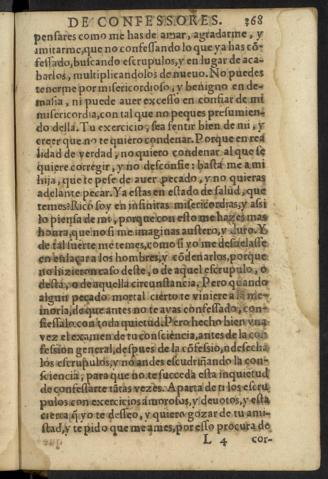 DE CONFESSORES. 368
pensares como me has de amar, agradarme, y
amitarme, que no confessando lo que ya has cõ-
fessado, buscando escrupulos, y en lugar de aca-
barlos, multiplicandolos de nueuo. No puedes
tenerme por misericordioso, y benigno en de-
masia, ni puede auer excesso en confiar de mi
misericordia, con tal que no peques presumien-
do della. Tu exercicio, sea sentir bien de mi, y
creer que no te quiero condenar. Porque en rea
lidad de verdad, no quiero condenar al que se
quiere corregir, y no desconfie: basta me a mi
hija, que te pese de auer pecado, y no quieras
adelante pecar. Ya estas en estado de salud, que
temes? Rico soy en infinitas misericordias, y assi
lo piensa de mi, porque con esto me hazes mas
honra, que no si me imaginas austero, y duro. Y
de tal suerte me temes, como si yo me desuelasse
en enlaçar a los hombres, y cõdenarlos, porque
no hizieron caso deste, o de aquel escrupulo, o
desta, o de aquella circunstancia. Pero quando
algun pecado mortal cierto te viniere a la me-
moria, de que antes no te ayas confessado, con-
fiessalo con toda quietud. Pero hecho bien vna
vez el examen de tu consciencia, antes de la con
fession general, despues de la cõfessiõ, desecha
los escrupulos, y no andes escudriñando la con-
sciencia; para que no te suceda esta inquietud
de confessarte tãtas vezes. Aparta de ti los escru
pulos con exercicios amorosos, y deuotos, y esta
cierta q̃ yo te desseo, y quiero gozar de tu ami-
stad, y te pido que me ames, por esso procura de
L 4 cor-